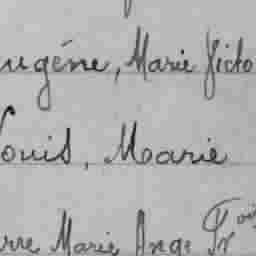 ugéne, Marie Victo
Louis, Marie
rre Marie Ange Fr.ois